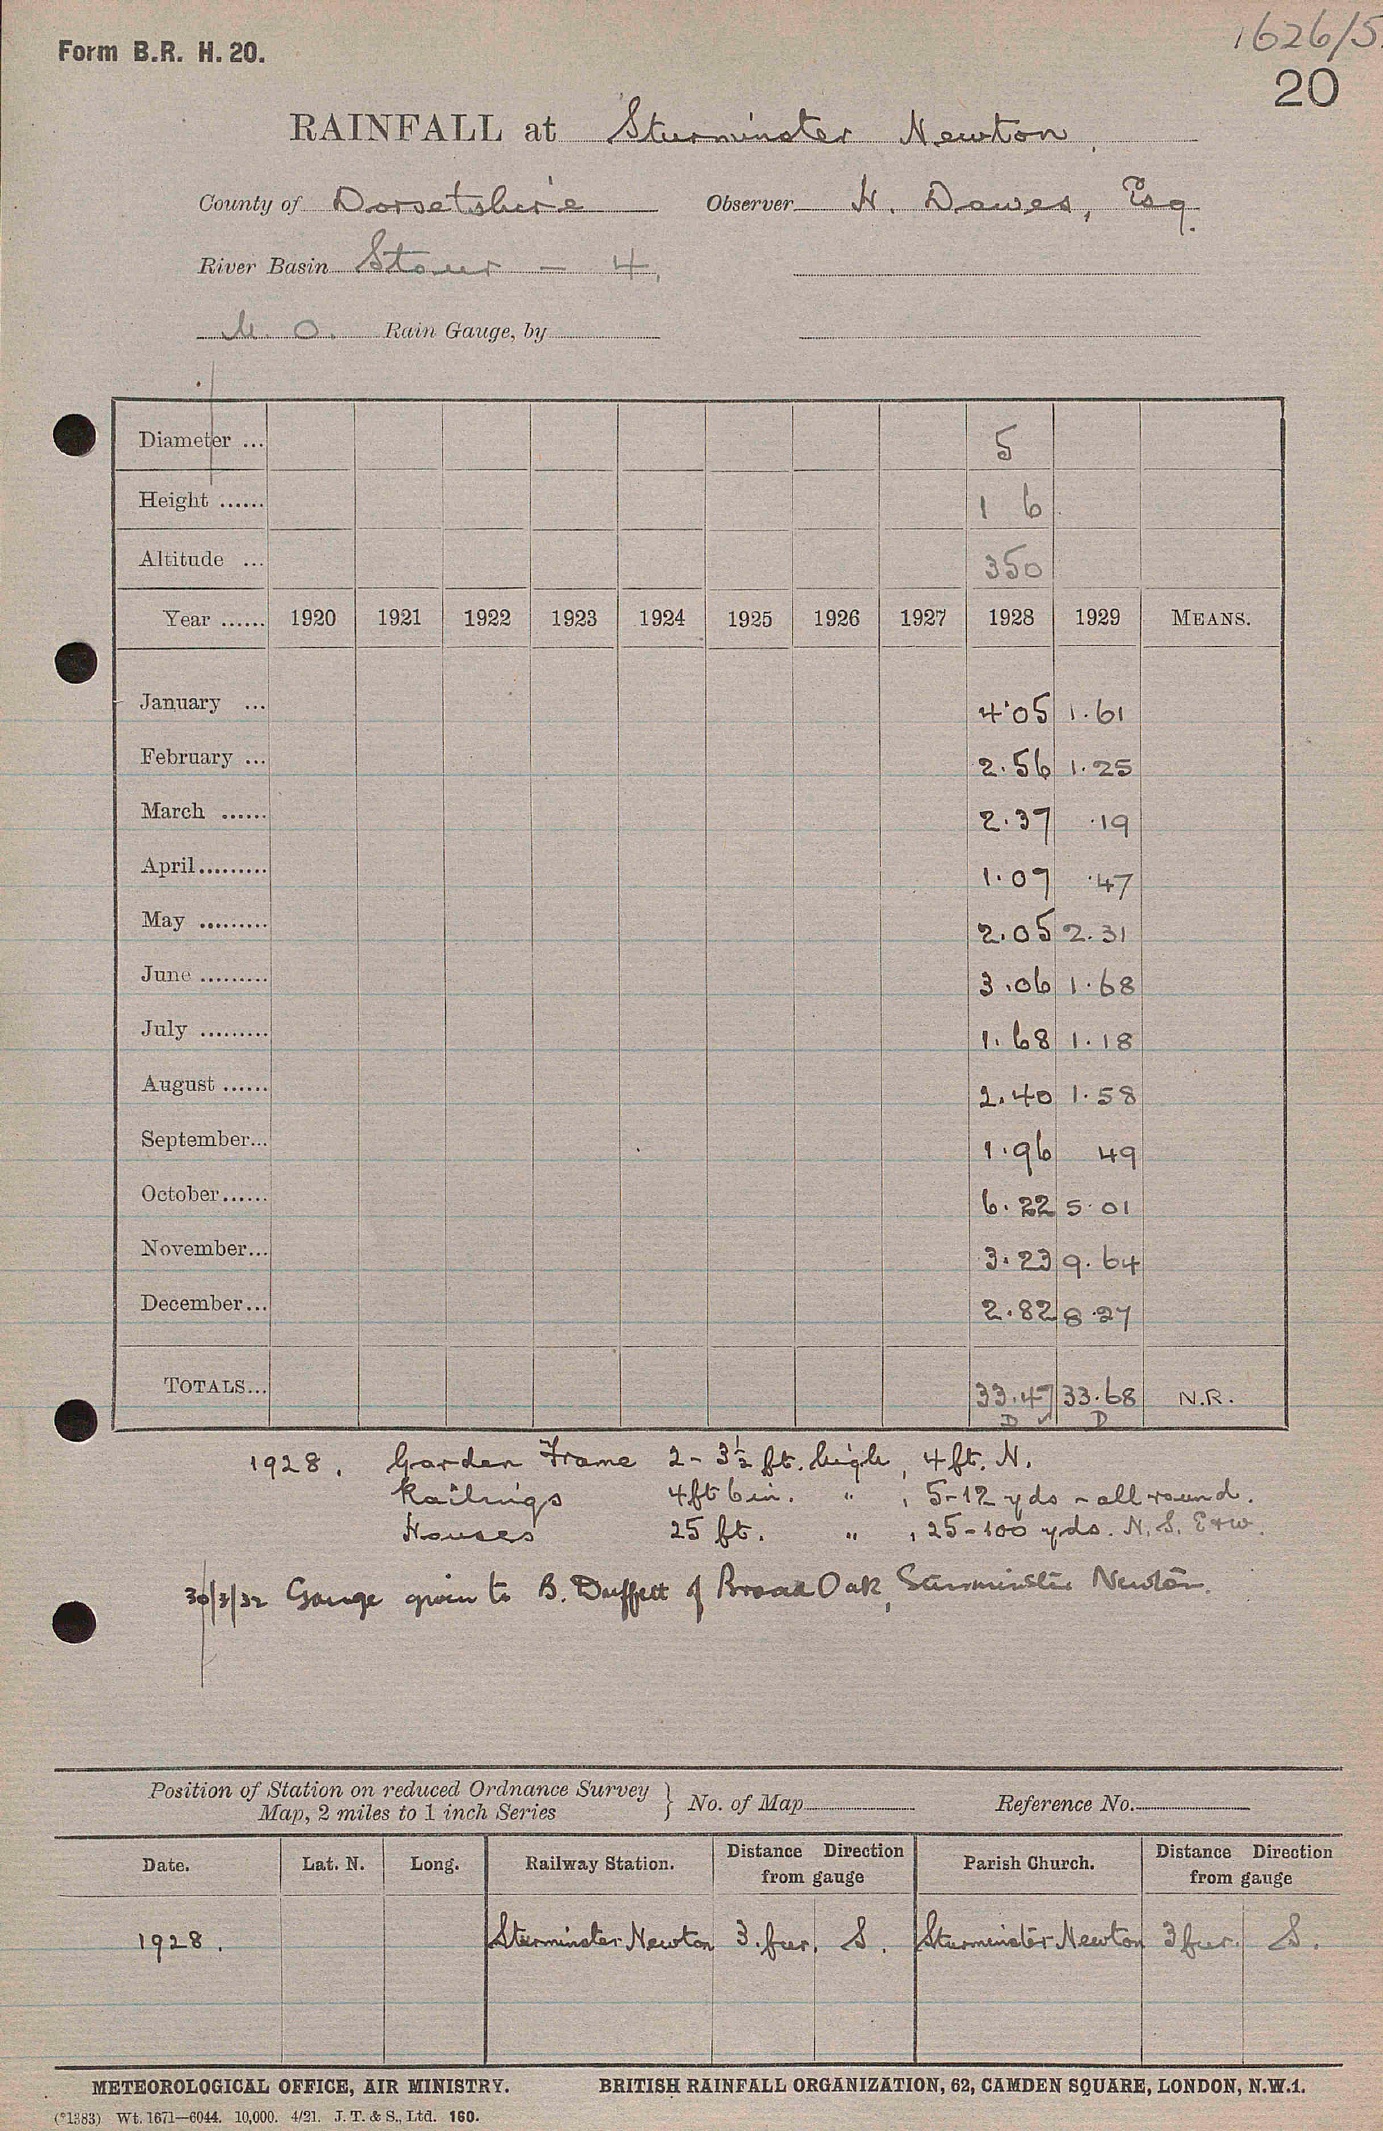 1626/5.
Form B.R. H. 20.
20
RAINFALL at Sturminster Newton.
County of Dorsetshire Observer H. Dawes, Esq.
River Basin Stour - 4.
M. O. Rain Gauge, by
Diameter ... 5
Height ...... 1 6
Altitude ... 350
Year ...... 1920 1921 1922 1923 1924 1925 1926 1927 1928 1929 MEANS.
January ... 4.05 1.61
February ... 2.56 1.25
March ...... 2.37 .19
April......... 1.07 .47
May ......... 2.05 2.31
June ......... 3.06 1.68
July ......... 1.68 1.18
August ...... 2.40 1.58
September... 1.96 49
October...... 6.22 5.01
November... 3.23 9.64
December... 2.82 8.27
TOTALS... 33.47 33.68 N.R.
D ✓ D
1928. Garden Frame 2 - 3½ ft. high, 4 ft. N.
Railings 4 ft 6 in. " , 5-12 yds - all round.
Houses 25 ft. " , 25-100 yds. N. S. E & W.
30/3/32 Gauge given to B. Duffett of Broad Oak, Sturminster Newton.
Position of Station on reduced Ordnance Survey
Map, 2 miles to 1 inch Series } No. of Map Reference No.
Date. Lat. N. Long. Railway Station. Distance from gauge Direction Parish Church. Distance from gauge Direction
1928. Sturminster Newton 3. fur. S. Sturminster Newton 3 fur. S.
METEOROLOGICAL OFFICE, AIR MINISTRY. BRITISH RAINFALL ORGANIZATION, 62, CAMDEN SQUARE, LONDON, N.W.1.
(*1383) Wt. 1671—6044. 10,000. 4/21. J. T. & S., Ltd. 160.